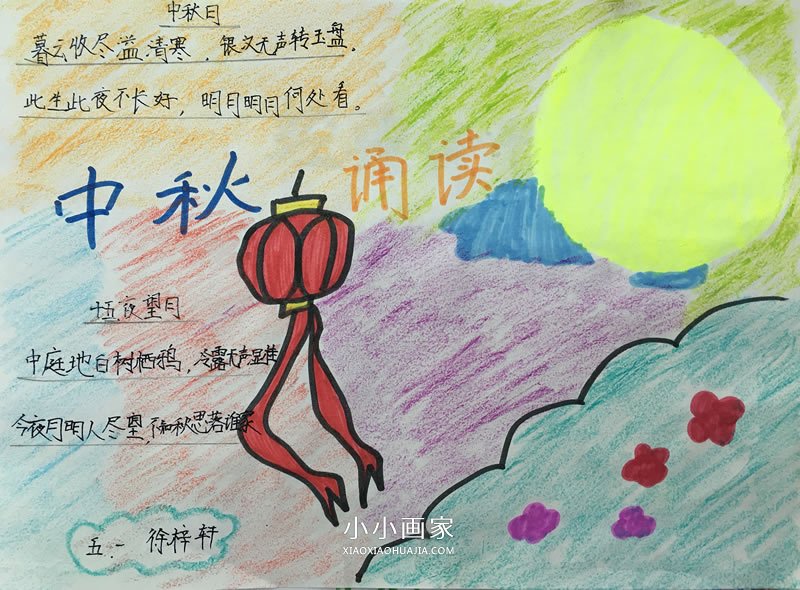 中秋月
暮云收尽溢清寒，银汉无声转玉盘。
此生此夜不长好，明月明月何处看。
中秋诵读
十五夜望月
中庭地白树栖鸦，冷露无声湿桂
今夜月明人尽望，不知秋思落谁家
五.一 徐梓轩
小小画家
XIAOXIAOHUAJIA.COM